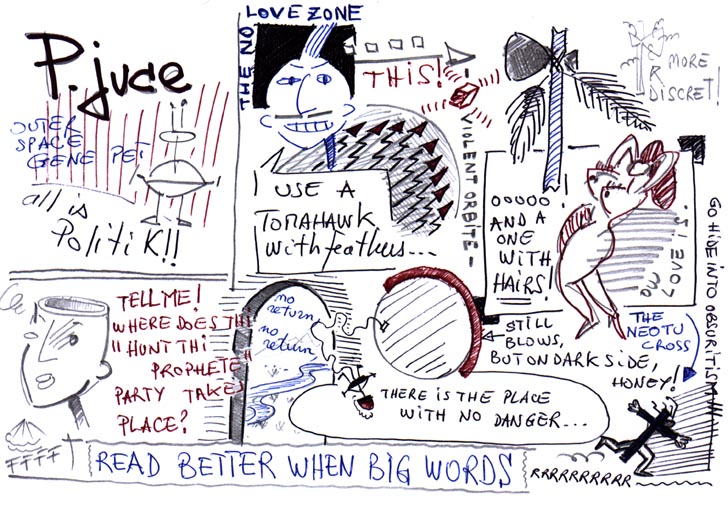 P.juce
OUTER
SPACE
GENE PET
all is
PolitiK!!
THE NO LOVE ZONE
THIS!
VIOLENT ORBITE
I USE A
TOMAHAWK
with feathers...
MORE
R
DISCRET!
OOOOO
AND A
ONE
WITH
HAIRS!
LOVE IS.
GO HIDE INTO OBSCURITISM!!!
TELL ME!
WHERE DOES THI
"HUNT THI
PROPHETE"
PARTY TAKES
PLACE?
no
return
no
return
STILL
BLOWS,
BUT ON DARK SIDE,
HONEY!
THE
NEOTU
CROSS
THERE IS THE PLACE
WITH NO DANGER...
READ BETTER WHEN BIG WORDS
RRRRRRRRRR